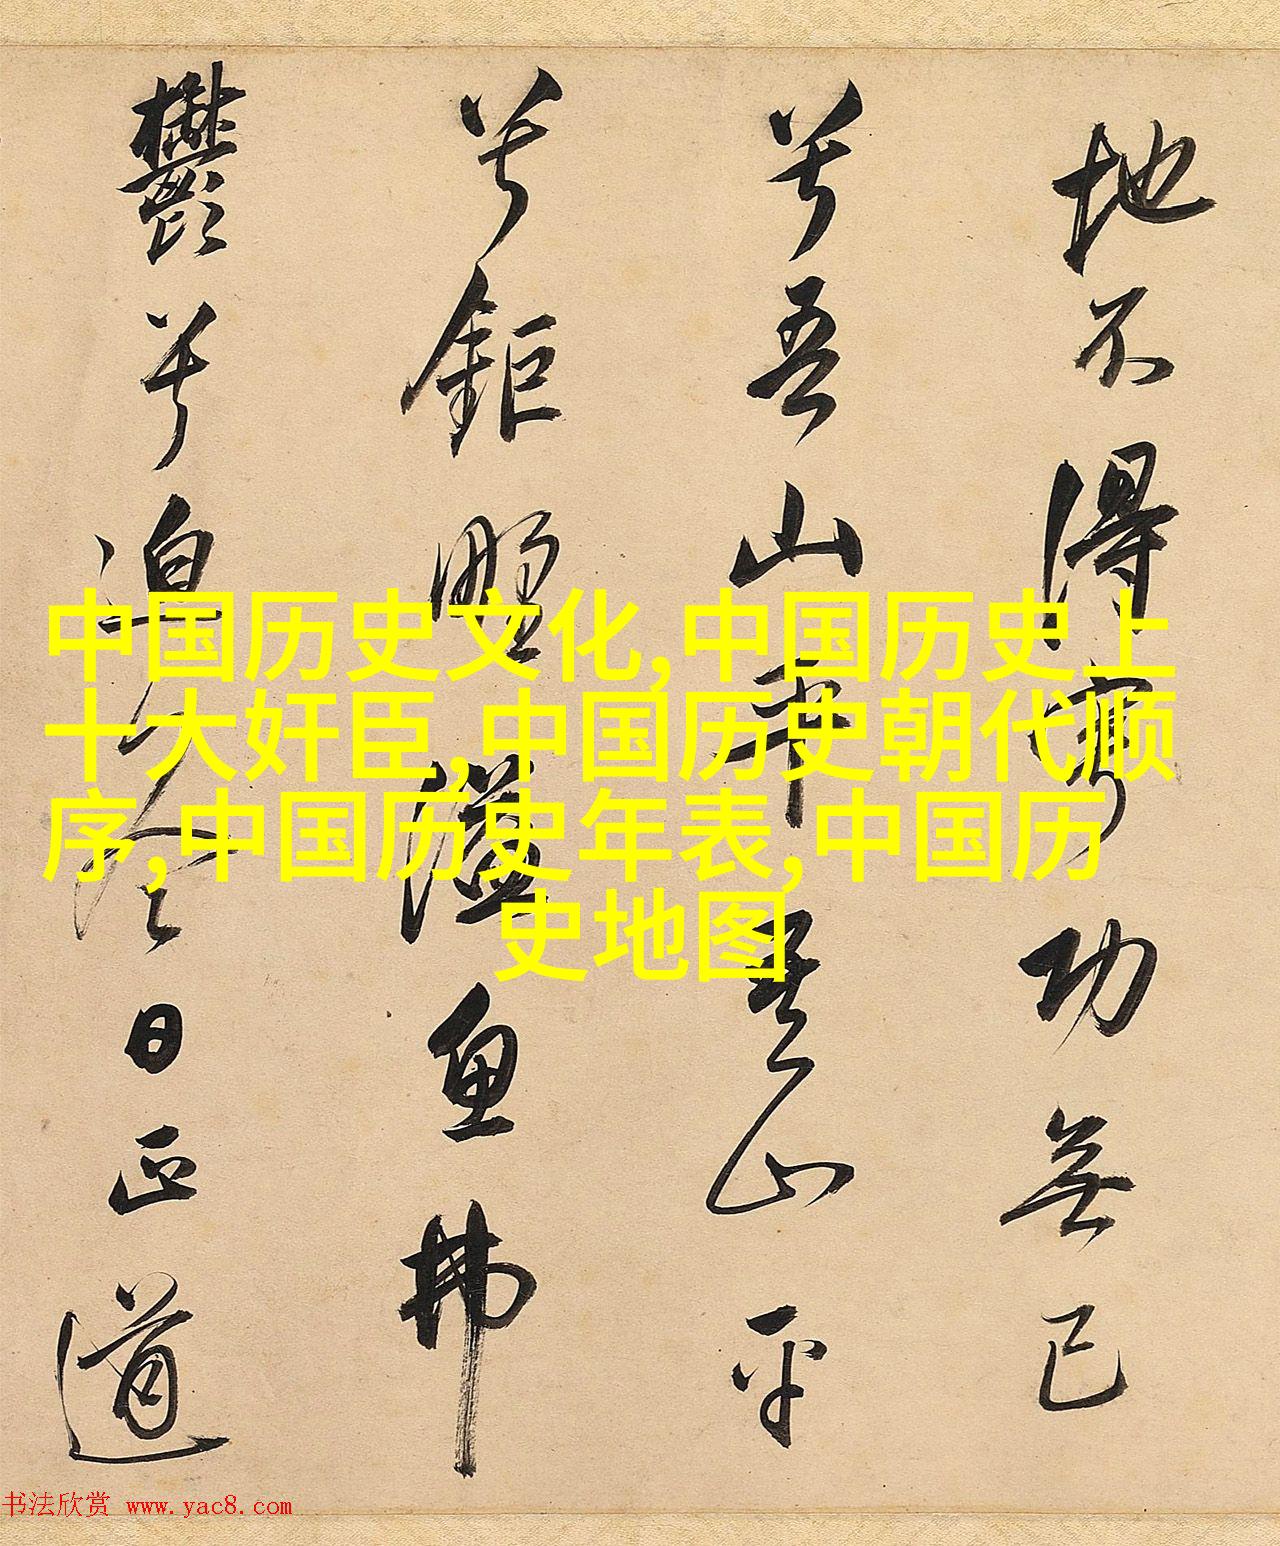 地不得寧功無已
兮吾山平吾山平
兮鉅野溢魚拂
鬱兮迫冬日正道
中国历史文化,中国历史上
十大奸臣,中国历史朝代顺
序,中国历史年表,中国历
史地图
书法欣赏 www.yac8.com